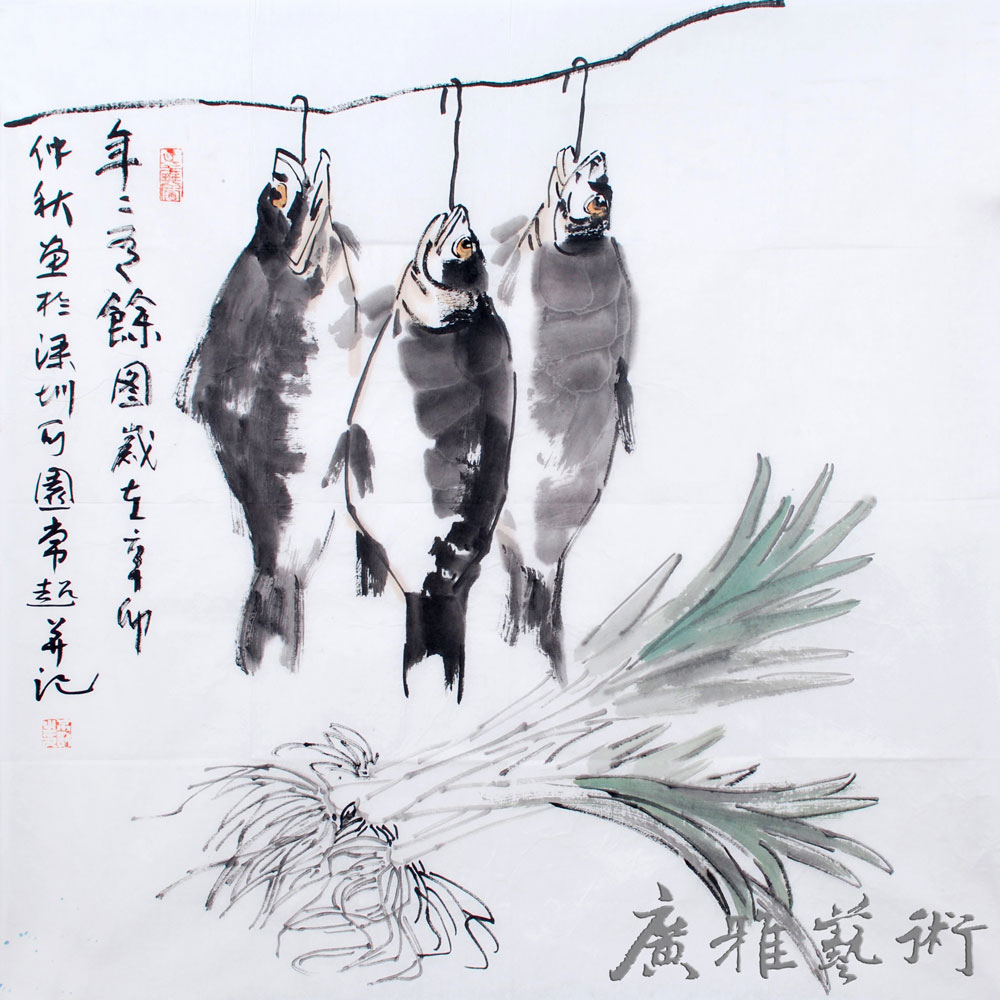 年〻有餘图歲在辛卯
仲秋画於深圳可園常起并记
廣雅藝術